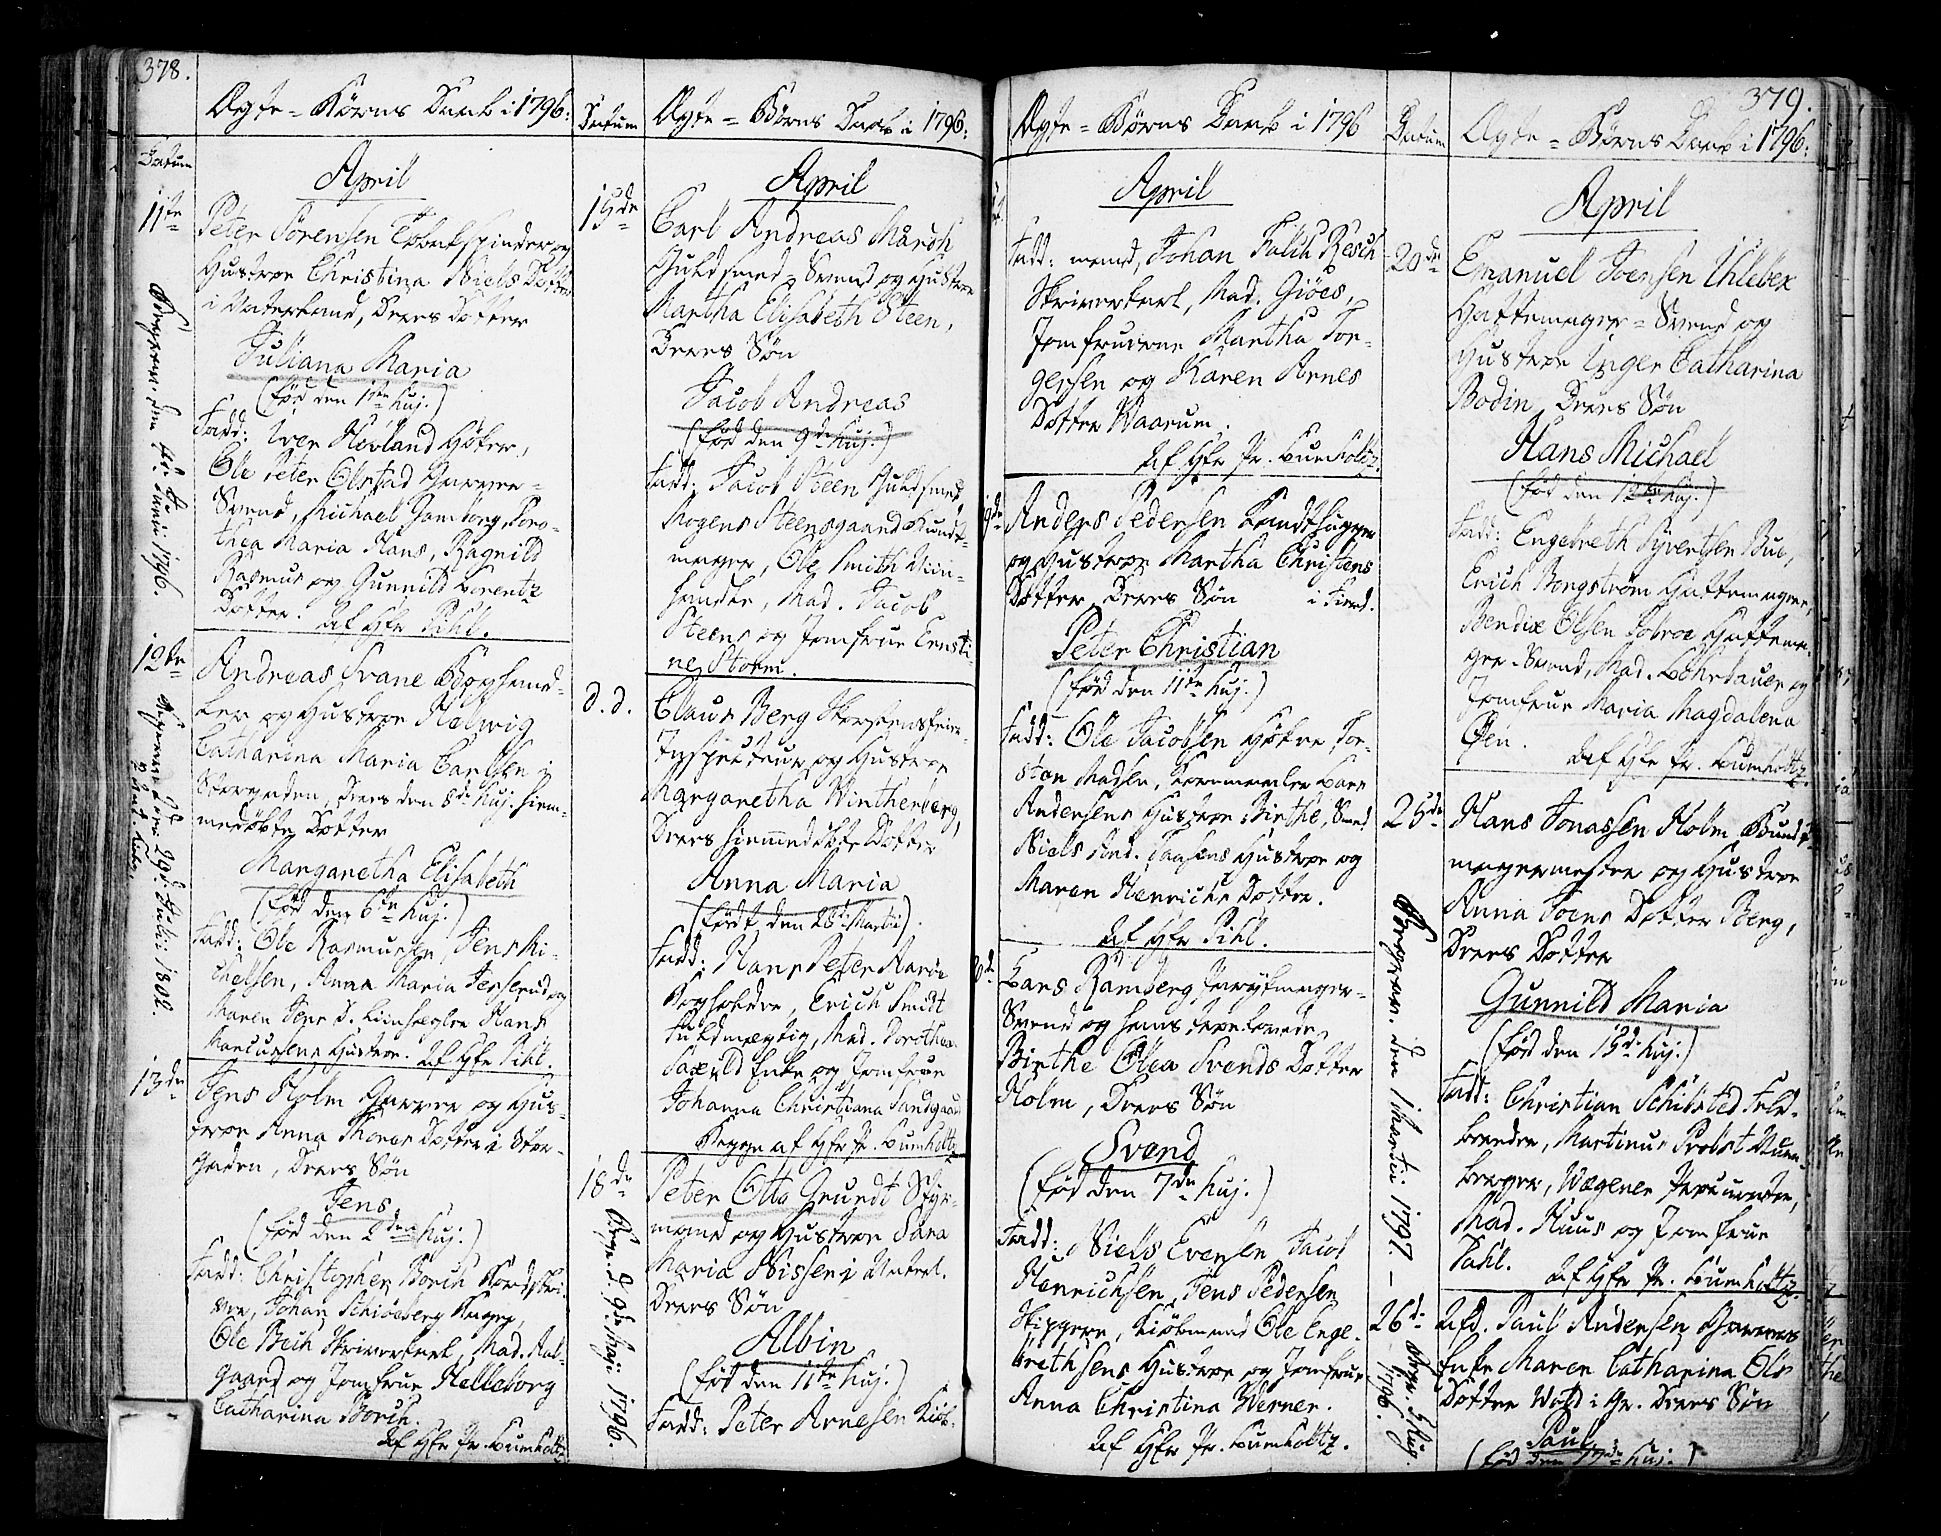 378.
Ægte=Børns Daab i 1796:
Datum
April
11te
Peter Sörensen Tobakspinder og
Hustroe Christina Niels Dotter
i Vaterland, Deres Dotter
Juliana Maria
(fød den 1ste huj.)
Fadd: Iver Hevland Høker,
Ole Peter Olstad Garver=
Svend, Michael Gamborg, Doro-
thea Maria Hans, Ragnild
Rasmus og Gunnild Lorentz
Dotter. Af Hr Pihl.
Begraven den Junii 1796.
12te
Andreas Svane Boghand-
ler og Hustroe Helwig
Catharina Maria Carlsen i
Storgaden, Deres den 8de huj. hiem-
medøbte Dotter
Margaretha Elisabeth
(fød den 6te huj.)
Fadd: Ole Rasmusen, Jens Mi-
chelsen, Anna Maria Jesserud og
Maren Jens D. Hans
Marcussens Hustroe. Af Hr Pihl.
den 29de Julii 1802.
13de
Jens Holm Garver og Hus-
troe Anna Thores Dotter i Stor-
gaden, Deres Søn
Jens
(fød den 2den huj.)
Fadd: Christopher Borch Bordskri-
ver, Johan Schiøsberg Kager,
Ole Bech Skriverkarl, Mad. Aal-
gaard og Jomfrue Helleborg
Catharina Borch.
Af Hr Pr. Lumholtz
Datum
Ægte=Børns Daab i 1796:
April
15de
Carl Andreas Mårch
Guldsmed=Svend og Hustroe
Martha Elisabeth Steen,
Deres Søn
Jacob Andreas
(fød den 9de huj.)
Fadd: Jacob Steen Guldsmed,
Mogens Steensgaard Bundt-
mager, Ole Smith Viin-
handler, Mad. Jacob
Steens og Jomfrue Ernsti-
ne Storm.
d. d.
Claus Berg Skorsteensfeier-
Inspecteur og Hustroe
Margaretha Wintherberg,
Deres hiemmedøbte Dotter
Anna Maria
(født den 28de Martii).
Fadd: Hans Peter
Bogholder, Erich Smidt
Fuldmægtig, Mad. Dorothea
Saxild Enke og Jomfrue
Johanna Christiana Sandgaard
Begge af Hr Pr. Lumholtz
18de
Peter Otto Grundt Styr-
mand og Hustroe Sara
Maria Nissen i Vaterl.
Deres Søn
Albin
(fød den 11te huj.)
Fadd: Peter Arnesen Kiøb-
Begr. d. 9de Maji 1796.
Ægte=Børns Daab i 1796
April
Fadd: mand, Johan Falch Resch
Skriverkarl, Mad. Giöes,
Jomfruerne Martha Tor-
gersen og Karen Arnes
Dotter Waarum.
Af Hr Pr. Lumholtz.
19de
Anders Pedersen Landthugger
og Hustroe Martha Christens
Dotter, Deres Søn i Fierd.
Peter Christian
(fød den 11te huj.)
Fadd: Ole Jacobsen Høker, Tor-
sten Madsen, Lars
Andersens Hustroe Birthe, Smed
Niels And. Hustroe og
Maren Henrichs Dotter.
Af Hr Pihl.
Lars Ramberg Parykmager=
Svend og hans
Birthe Olea Svends Dotter
Holm, Deres Søn
Svend
(fød den 7de huj.)
Fadd: Niels Evensen, Jacob
Henrichsen, Jens Pedersen
Skippere, Kiøbmand Ole Enge-
brethsens Hustroe og Jomfrue
Anna Christina Werner.
Af Hr Pr. Lumholtz.
379.
Datum
Ægte=Børns Daab i 1796:
April
20de
Emanuel Joensen Uhlebex
Hattemager=Svend og
Hustroe Inger Catharina
Bodin, Deres Søn
Hans Michael
(fød den 12te huj.)
Fadd: Engebreth Syvertsen Bue,
Erich Bergstrøm Hattemager,
Bendix Olsen Hattema-
ger=Svend, Mad. Løhrdauer og
Jomfrue Maria Magdalena
Øen.
Af Hr Pr. Lumholtz.
25de
Hans Jonassen Holm Bundt-
magermester og Hustroe
Anna Joens Dotter Berg,
Deres Dotter
Gunnild Maria
(fød den 13de huj.)
Fadd: Christian Schibsted Feld-
bereder, Martinus Probst
Wægener
Mad. Huus og Jomfrue
Dahl.
Af Hr Pr. Lumholtz.
Begraven den 1 Martii 1797.
26de
Afd. Paul Andersen
Enke Maren Catharina Ols
Dotter Wold i Gr. Deres Søn
Paul
(fød den 17de huj.)
Begr. 5 Aug. 1796.